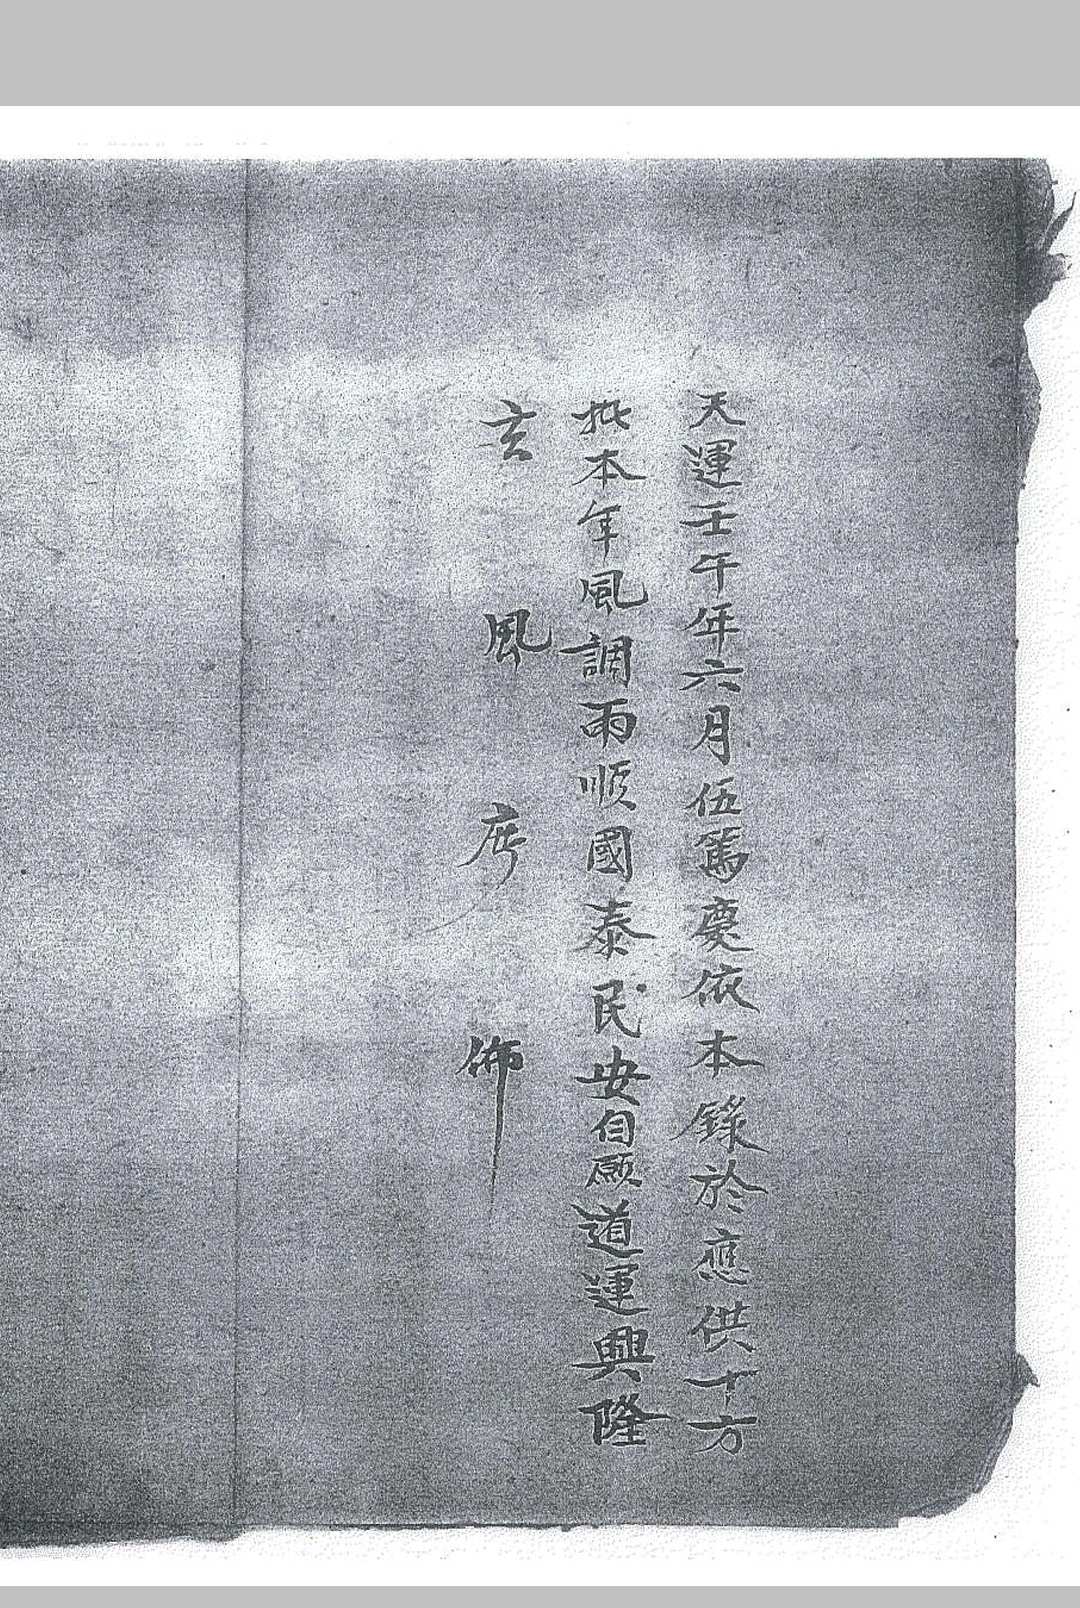 天運壬午年六月伍篤慶依本錄於應供十方
批本年風調雨順國泰民安自願道運興隆
玄風序佛